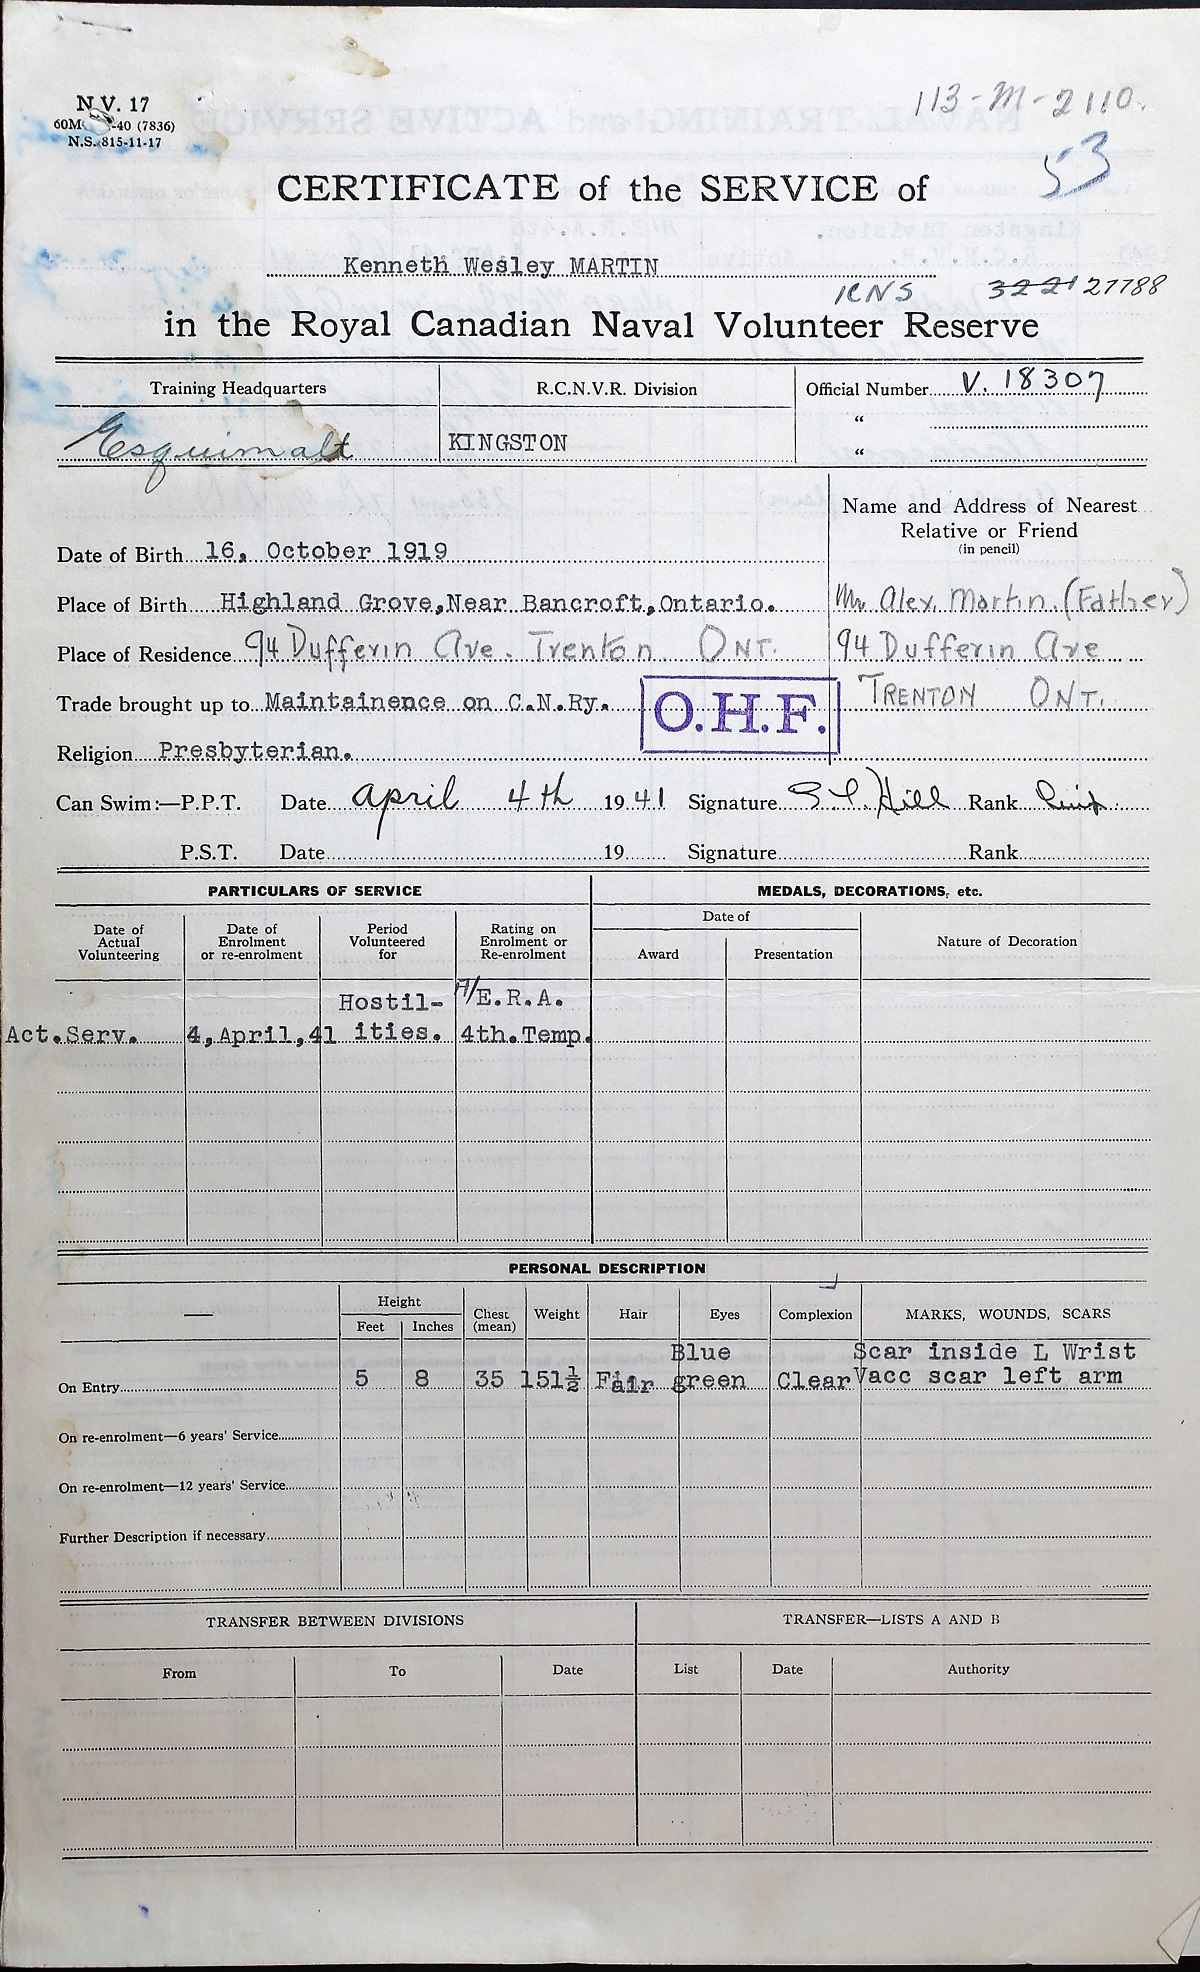 N.V. 17
113-M-2110.
60M -40 (7836)
N.S. 815-11-17
53
CERTIFICATE of the SERVICE of
Kenneth Wesley MARTIN
3221 27788
in the Royal Canadian Naval Volunteer Reserve
Training Headquarters R.C.N.V.R. Division Official Number V. 18307
"
Esquimalt KINGSTON
"
Name and Address of Nearest
Relative or Friend
(in pencil)
Date of Birth 16, October 1919
Place of Birth Highland Grove,Near Bancroft,Ontario. Mr Alex. Martin. (Father)
Place of Residence 94 Dufferin Ave. Trenton ONT. 94 Dufferin Ave
Trade brought up to Maintainence on C.N.Ry. O.H.F. TRENTON ONT.
Religion Presbyterian.
Can Swim:—P.P.T. Date april 4th 1941 Signature Hill Rank
P.S.T. Date 19 Signature Rank
PARTICULARS OF SERVICE MEDALS, DECORATIONS, etc.
Date of Actual Volunteering Date of Enrolment or re-enrolment Period Volunteered for Rating on Enrolment or Re-enrolment Date of Nature of Decoration
Award Presentation
Hostil- A/E.R.A.
Act.Serv. 4,April,41 ities. 4th.Temp.
PERSONAL DESCRIPTION
— Height Chest (mean) Weight Hair Eyes Complexion MARKS, WOUNDS, SCARS
Feet Inches
Blue Scar inside L Wrist
On Entry 5 8 35 151½ Fair green Clear Vacc scar left arm
On re-enrolment—6 years' Service
On re-enrolment—12 years' Service
Further Description if necessary
TRANSFER BETWEEN DIVISIONS TRANSFER—LISTS A AND B
From To Date List Date Authority